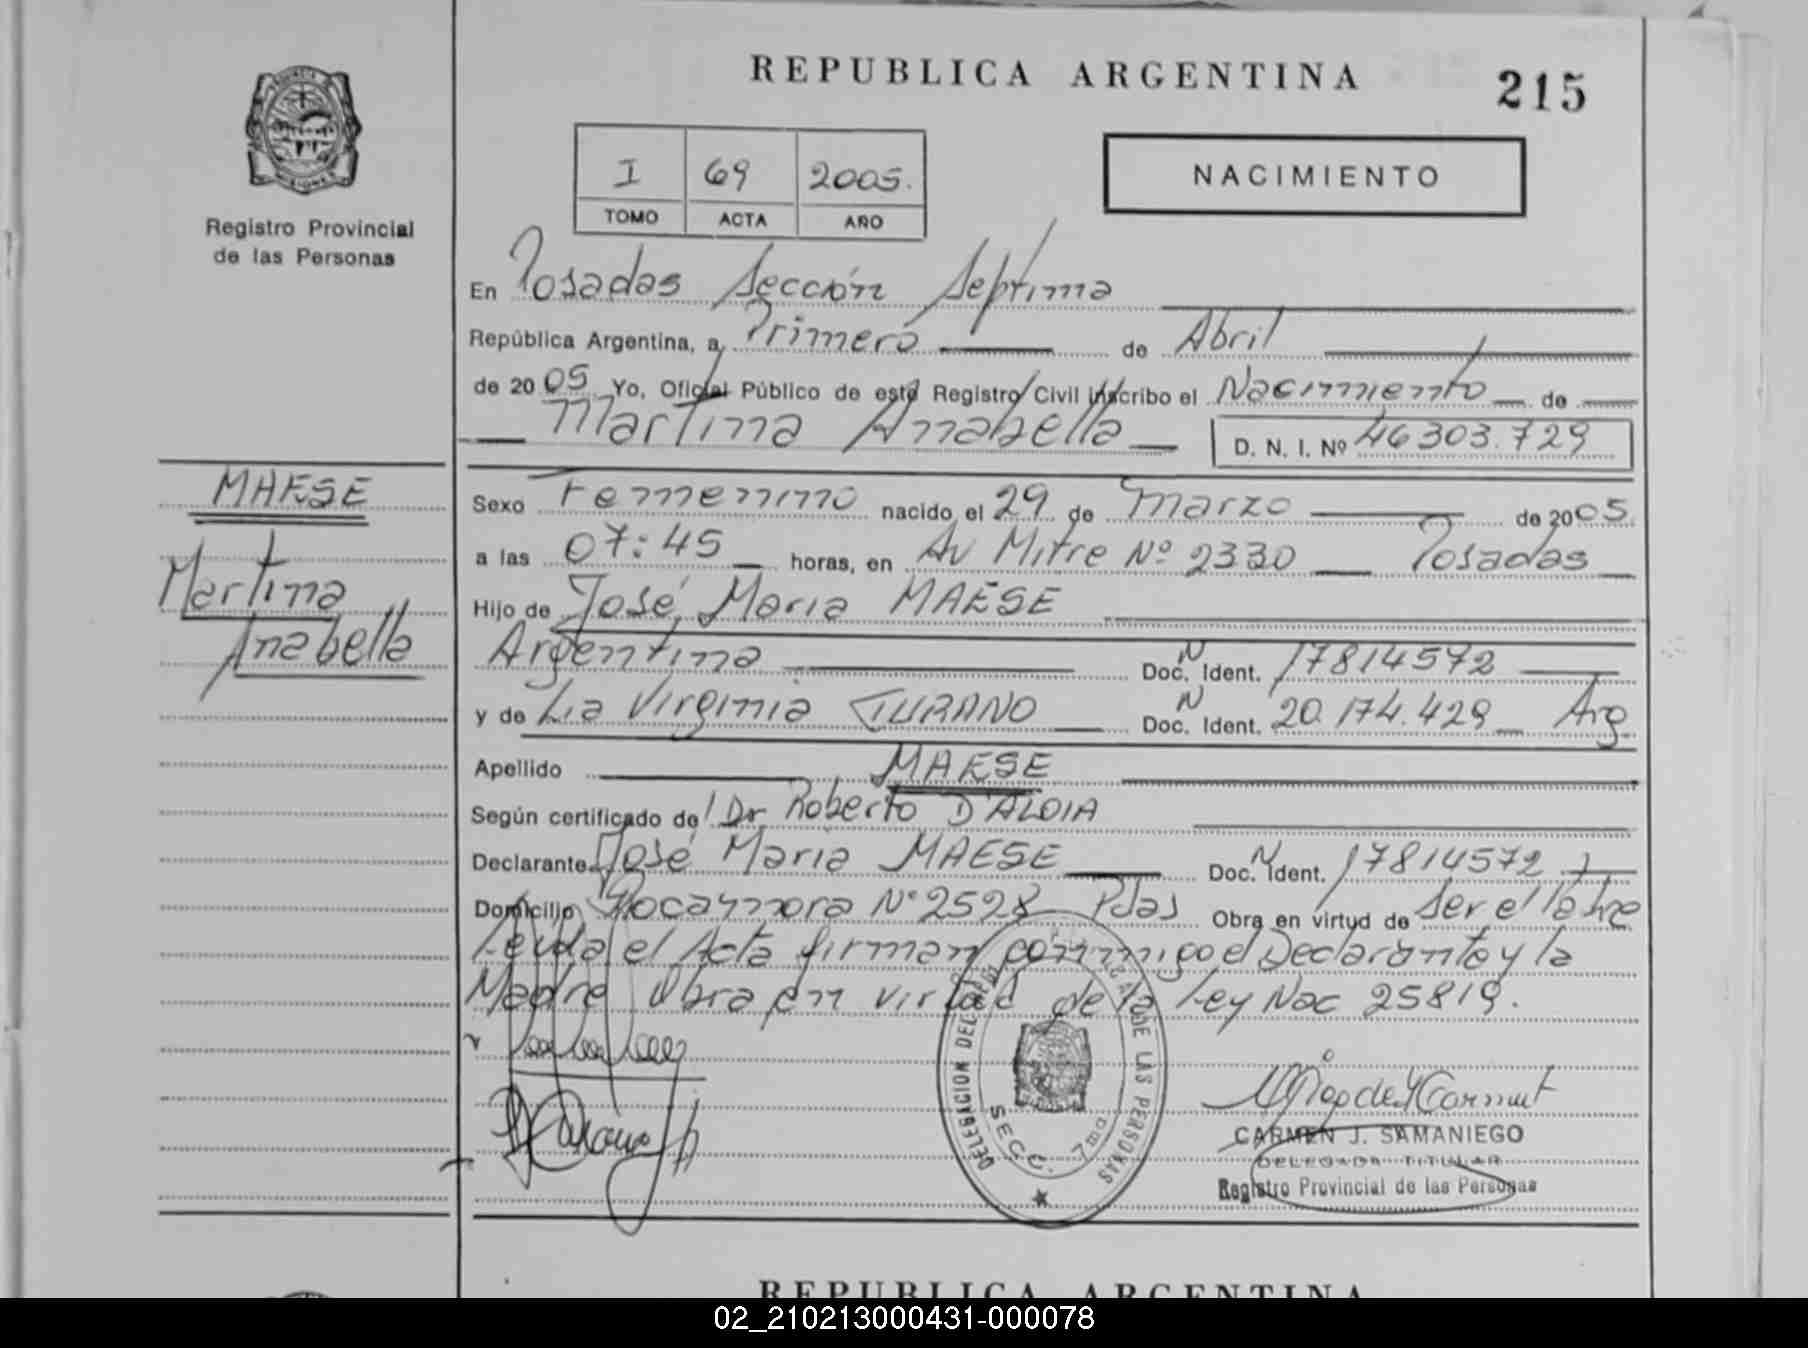 REPUBLICA ARGENTINA
215
I 69 2005.
TOMO ACTA AÑO
NACIMIENTO
Registro Provincial
de las Personas
En Posadas Sección Septima
República Argentina, a Primero de Abril
de 2005 Yo, Oficial Público de este Registro Civil inscribo el Nacimiento de
Martina Anabella D. N. I. Nº 46303.729
MAESE
Martina
Anabella
Sexo Femenino nacido el 29 de Marzo de 2005.
a las 07:45 horas, en Av Mitre Nº 2330 Posadas
Hijo de José Maria MAESE
Argentina Doc. N Ident. 17814572
y de Lia Virginia TURANO Doc. N Ident. 20.174.429 Arg
Apellido MAESE
Según certificado de Dr Roberto D'ALOIA
Declarante José Maria MAESE Doc. N Ident. 17814572
Domicilio Rocamora Nº 2528 Pdas Obra en virtud de Ser el Padre
Leida el Acta firman conmigo el Declarante y la
Madre Obra en virtud de la Ley Nac 25819.
DELEGACION DEL DE LAS PERSONAS
SECC. 7ma
CARMEN J. SAMANIEGO
DELEGADA TITULAR
Registro Provincial de las Personas
REPUBLICA ARGENTINA
02_210213000431-000078